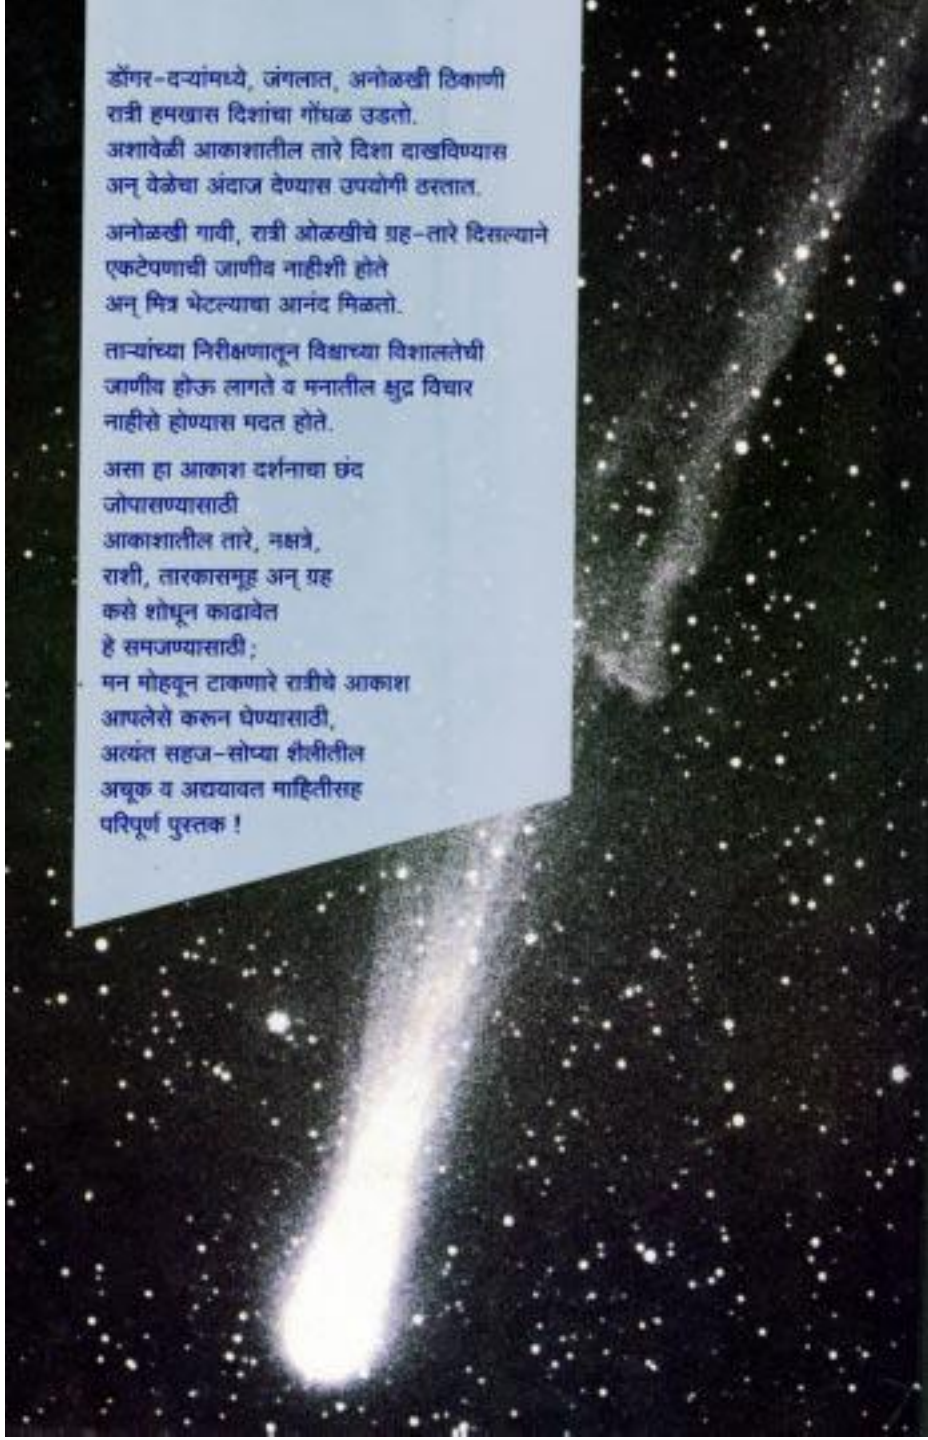 डोंगर-दऱ्यांमध्ये, जंगलात, अनोळखी ठिकाणी
रात्री हमखास दिशांचा गोंधळ उडतो.
अशावेळी आकाशातील तारे दिशा दाखविण्यास
अन् वेळेचा अंदाज देण्यास उपयोगी ठरतात.
अनोळखी गावी, रात्री ओळखीचे ग्रह-तारे दिसल्याने
एकटेपणाची जाणीव नाहीशी होते
अन् मित्र भेटल्याचा आनंद मिळतो.
ताऱ्यांच्या निरीक्षणातून विश्वाच्या विशालतेची
जाणीव होऊ लागते व मनातील क्षुद्र विचार
नाहीसे होण्यास मदत होते.
असा हा आकाश दर्शनाचा छंद
जोपासण्यासाठी
आकाशातील तारे, नक्षत्रे,
राशी, तारकासमूह अन् ग्रह
कसे शोधून काढावेत
हे समजण्यासाठी;
मन मोहवून टाकणारे रात्रीचे आकाश
आपलेसे करून घेण्यासाठी,
अत्यंत सहज-सोप्या शैलीतील
अचूक व अद्ययावत माहितीसह
परिपूर्ण पुस्तक !